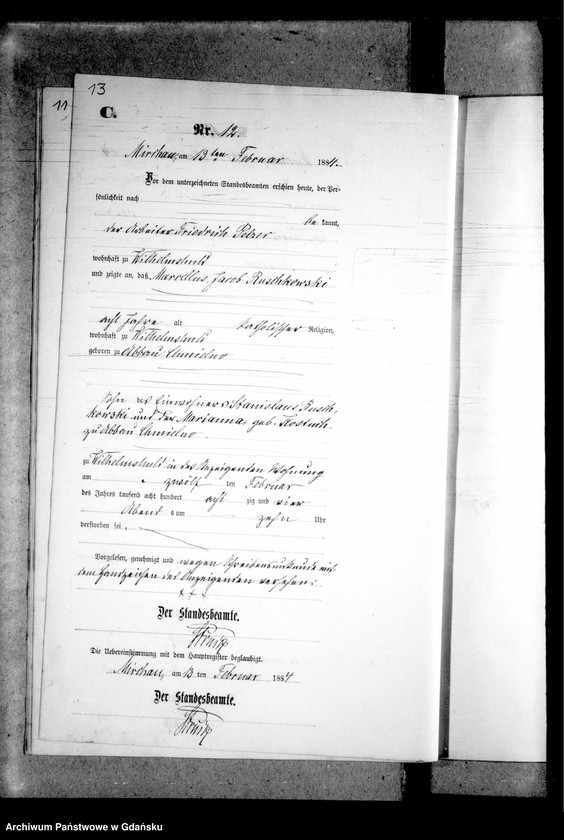 13
11
C.
Nr. 12.
Mirchau, am 13 ten Februar 1884.
Vor dem unterzeichneten Standesbeamten erschien heute, der Per-
sönlichkeit nach
be kannt,
der Arbeiter Friedrich Pelzer
wohnhaft zu Wilhelmshuld
und zeigte an, daß Marcellus, Jacob Ruschkowski
acht Jahre alt katholischer Religion,
wohnhaft zu Wilhelmshuld
geboren zu Abbau Chmielno
Sohn des Einwohners Stanislaus Rusch-
kowski und der Marianna, geb.
zu Abbau Chmielno
zu Wilhelmshuld in des Anzeigenden Wohnung
am zwölf ten Februar
des Jahres tausend acht hundert acht zig und vier
Abend s um zehn Uhr
verstorben sei.
Vorgelesen, genehmigt und wegen Schreibensunkunde mit
dem Handzeichen des Anzeigenden versehen.
+ + +
Der Standesbeamte.
Die Uebereinstimmung mit dem Hauptregister beglaubigt.
Mirchau, am 13 ten Februar 1884
Der Standesbeamte.
Archiwum Państwowe w Gdańsku